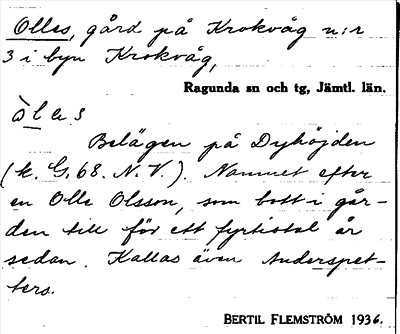 Olles, gård på Krokvåg n:r
3 i byn Krokvåg,
Ragunda sn och tg, Jämtl. län.
òlas
Belägen på Dyhöjden
(k. G. 68. N. V.). Namnet efter
en Olle Olsson, som bott i går-
den till för ett fyrtiotal år
sedan. Kallas även Anderspet-
ters.
BERTIL FLEMSTRÖM 1936.